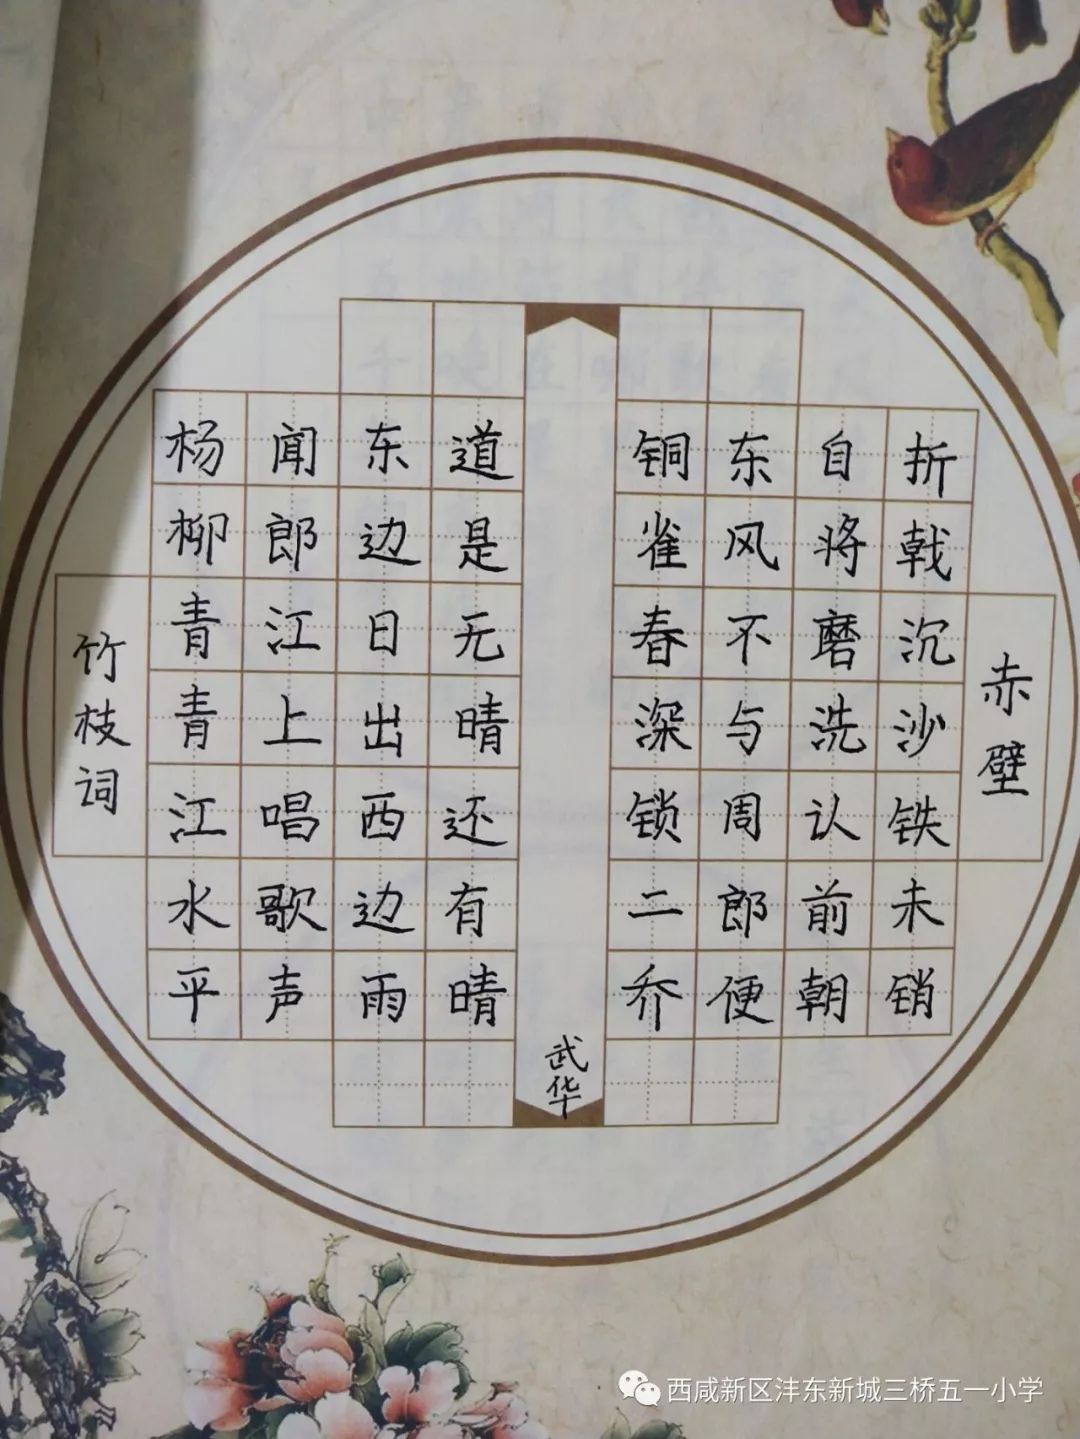 赤壁
折戟沉沙铁未销
自将磨洗认前朝
东风不与周郎便
铜雀春深锁二乔
竹枝词
杨柳青青江水平
闻郎江上唱歌声
东边日出西边雨
道是无晴还有晴
武华
西咸新区沣东新城三桥五一小学